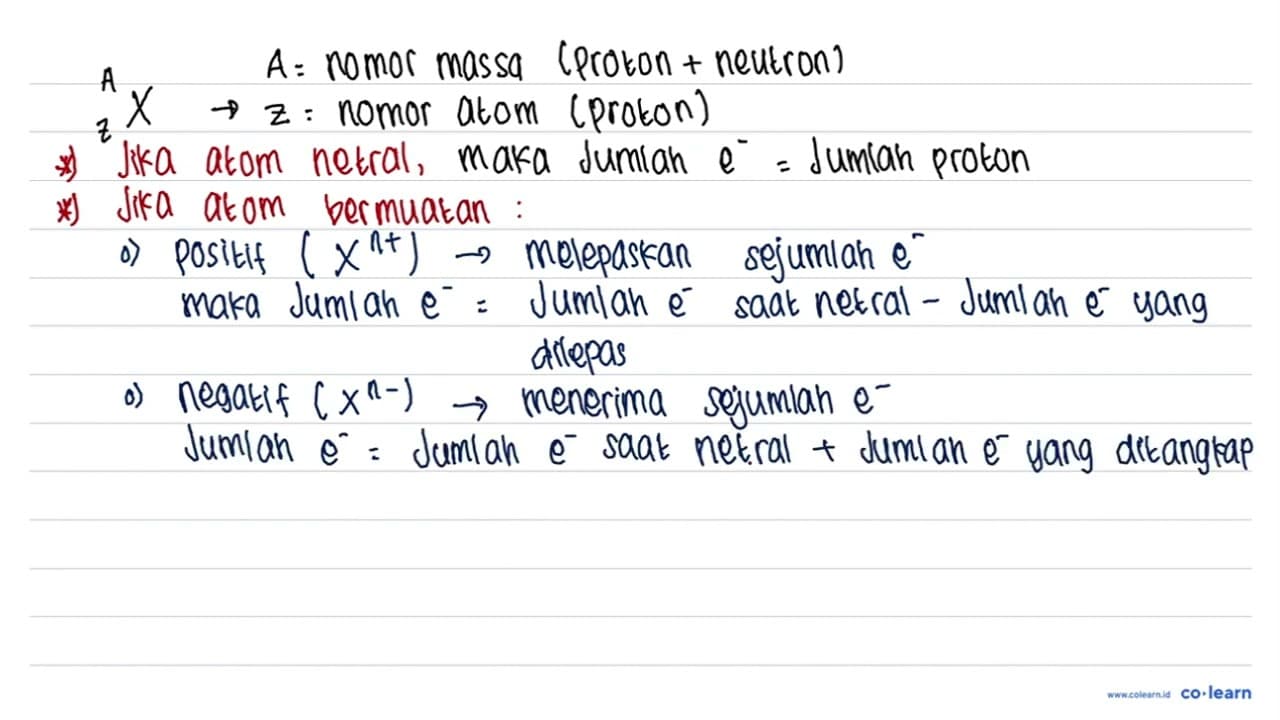 A = nomor massa (proton + neutron)
A
Z X → Z = nomor atom (proton)
*) Jika atom netral, maka Jumlah e⁻ = Jumlah proton
*) Jika atom bermuatan :
o) positif (Xⁿ⁺) → melepaskan sejumlah e⁻
maka Jumlah e⁻ = Jumlah e⁻ saat netral - Jumlah e⁻ yang
dilepas
o) negatif (Xⁿ⁻) → menerima sejumlah e⁻
Jumlah e⁻ = Jumlah e⁻ saat netral + Jumlah e⁻ yang ditangkap
www.colearn.id co·learn